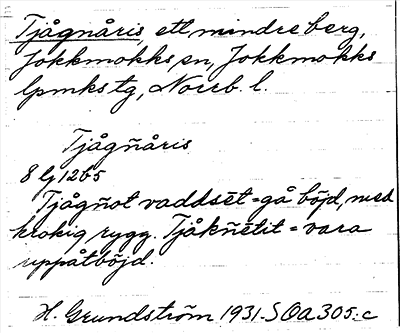 Tjågnåris, ett mindre berg,
Jokkmokks sn, Jokkmokks
lpmks tg, Norrb. l.
Tjågñåris
8 lj 1265
Tjågñot vaddsēt = gå böjd, med
krokig rygg. Tjåkñētit = vara
uppåtböjd.
H. Grundström 1931. SOa 305:c